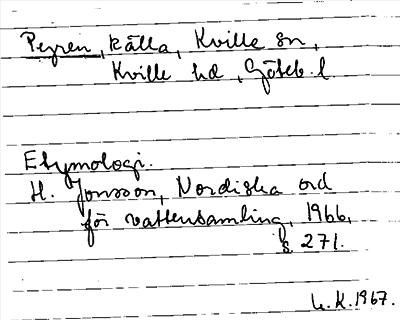 Peyren, källa, Kville sn,
Kville hd, Göteb. l
Etymologi.
H. Jonsson, Nordiska ord
för vattensamling, 1966,
§ 271.
U.K. 1967.